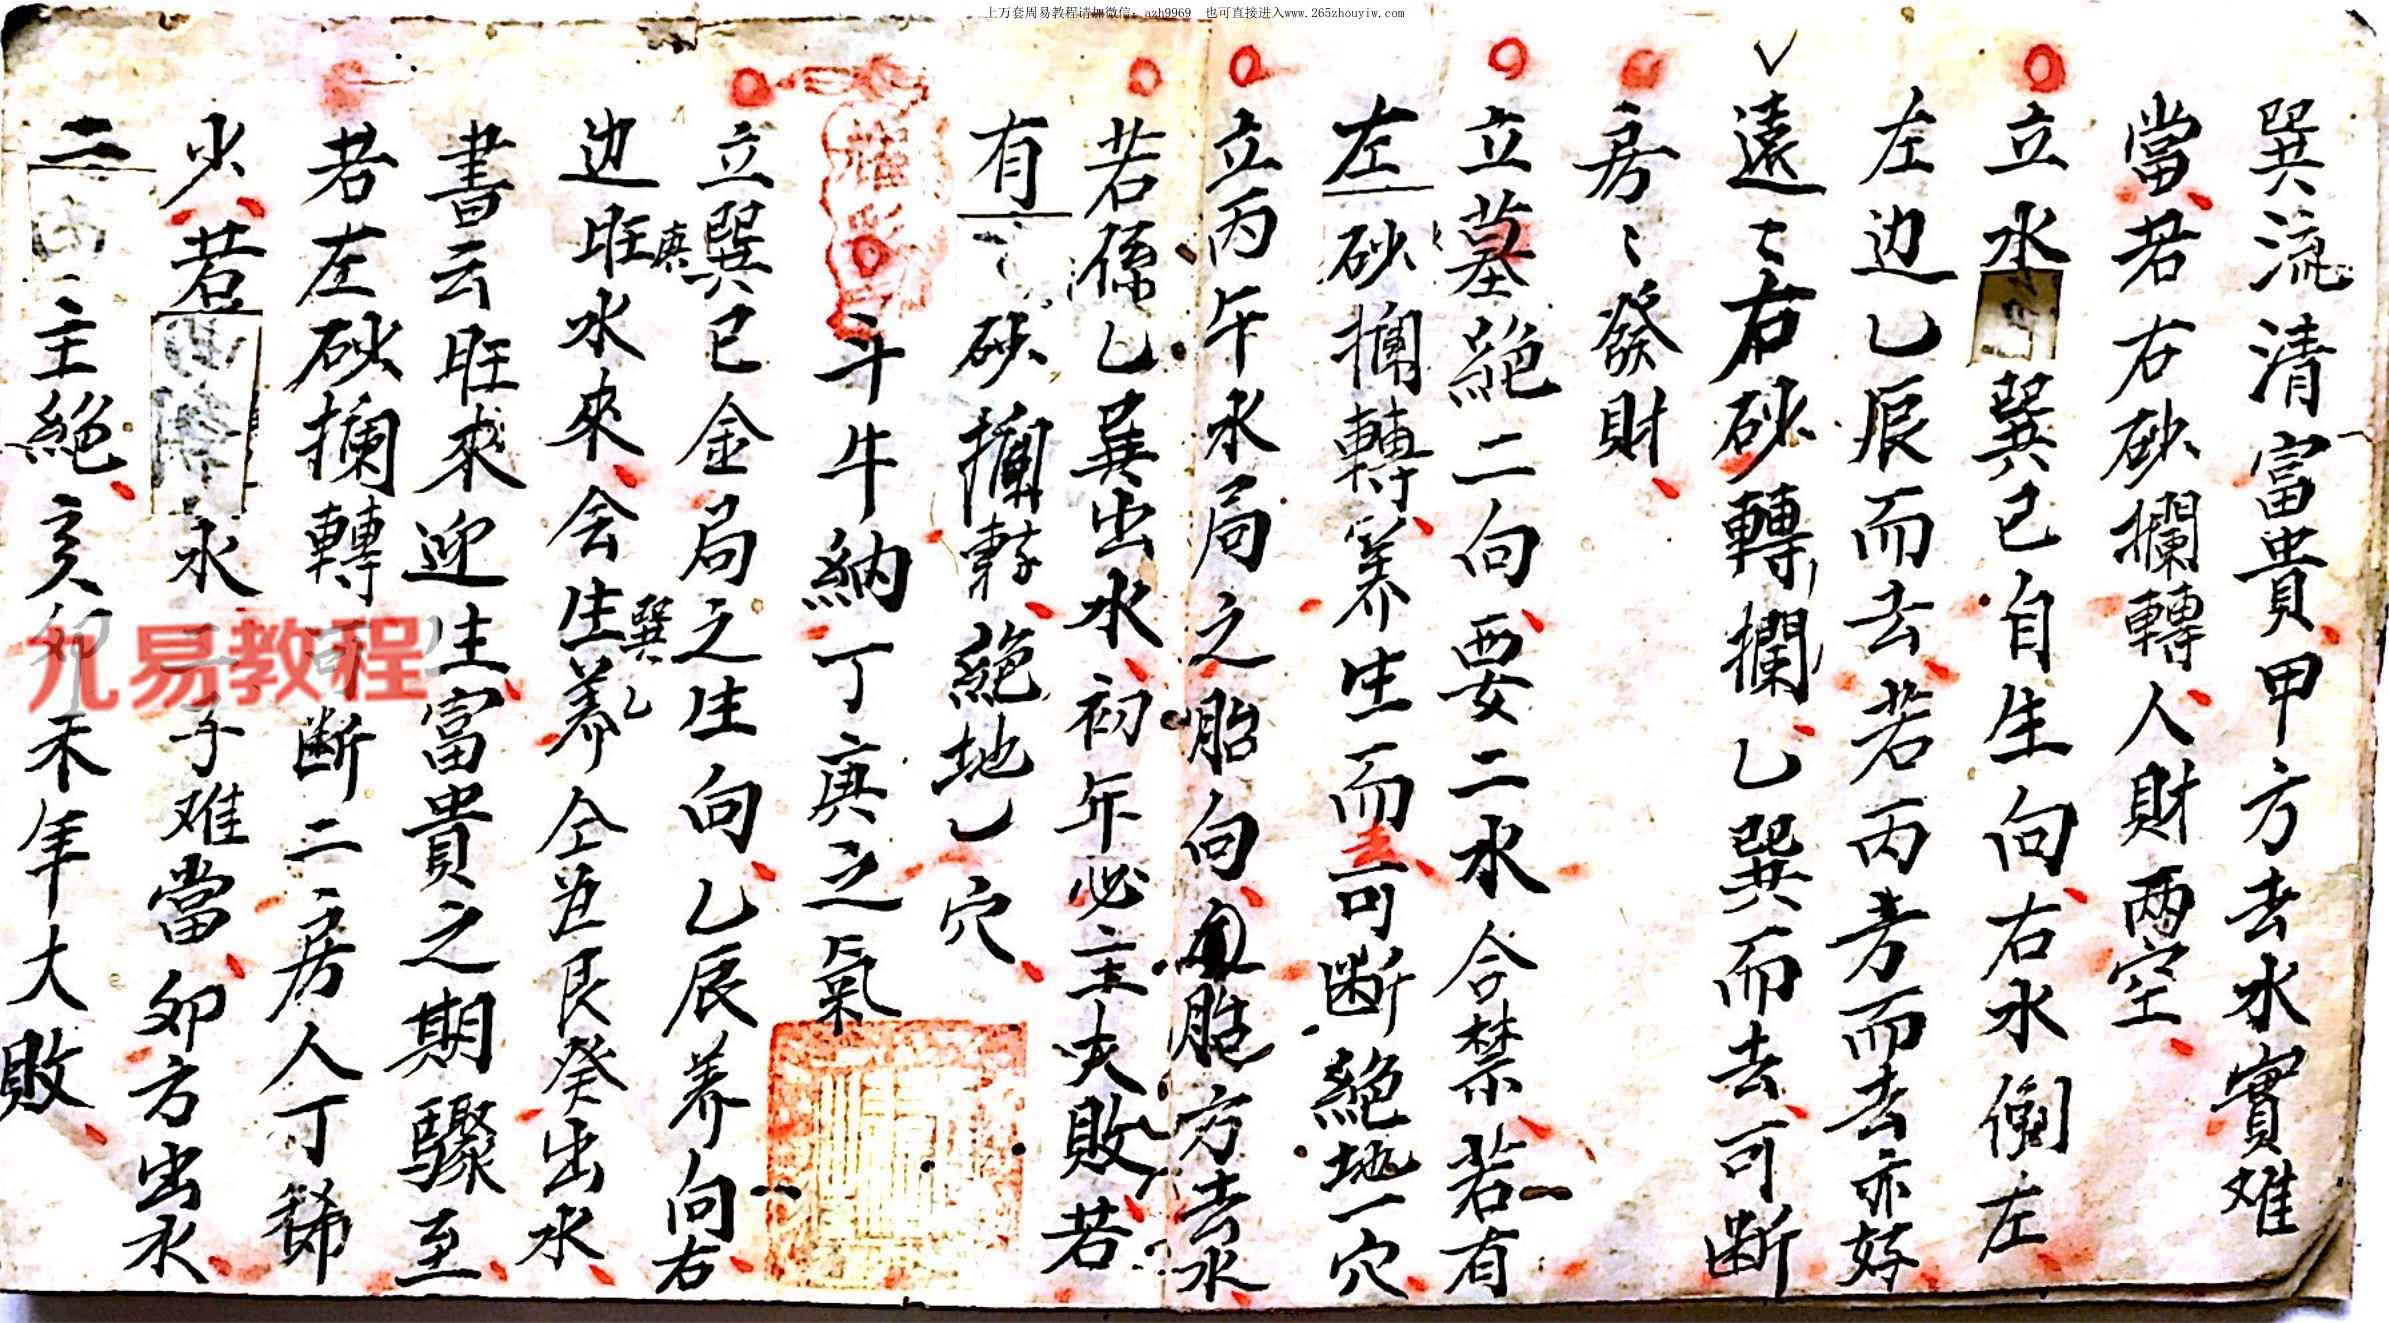 上万套周易教程请加微信：azh9969　也可直接进入www.265zhouyiw.com
巽流清富貴甲方去水實难
當若右砂攔轉人財两空
立水巽巳自生向右水倒左
左边乙辰而去若丙方而去亦好
遠〻右砂轉攔乙巽而去可断
房〻發財
立墓絕二向要二水合禁若有
左砂攔轉養生而去可断絕地一穴
立丙午水局之胎向胞方去水
若係乙巽出水初年必主大敗若
有砂攔轉絕地乙穴
斗牛納丁庚之氣
立巽巳金局之生向乙辰养向右
边旺庚水來会生巽养乙仝丑艮癸出水
書云旺來迎生富貴之期驟至
若左砂攔轉可断二房人丁稀
少若水二子难當卯方出水
三主絕亥卯禾年大敗
九易教程